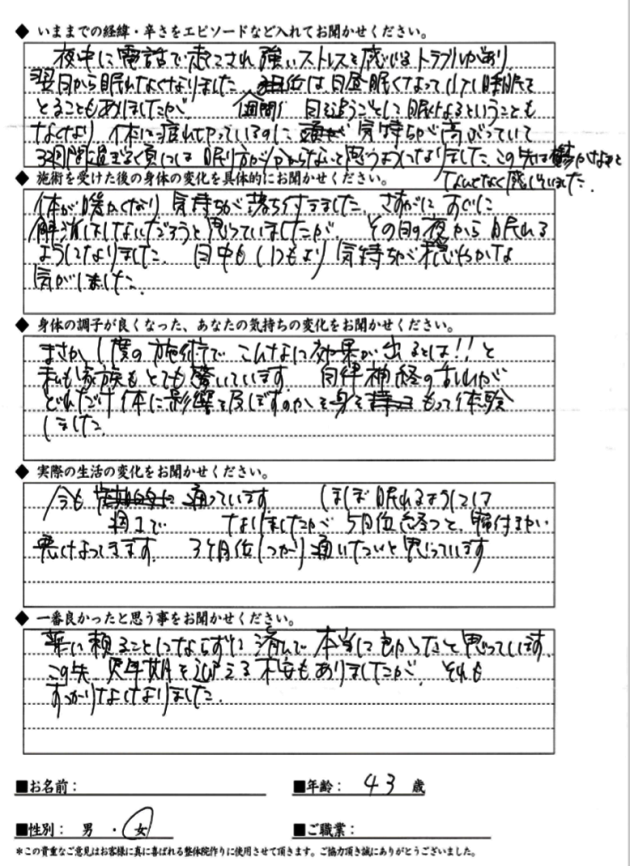 ◆ いままでの経緯・辛さをエピソードなど入れてお聞かせください。
夜中に電話で起こされ強いストレスを感じるトラブルがあり
翌日から眠れなくなりました 位は日昼眠くなって1〜2時間
とることもありましたが 1週間 日を追うごとに眠くなるということも
なくなり 体は疲れてやっているのに 気持ちが高がっていて
3週間過ぎる頃には 眠り方が分からないと思うようになりました この先は鬱かなぁと
なんとなく感じていました
◆ 施術を受けた後の身体の変化を具体的にお聞かせください。
体が暖かくなり 気持ちが落ち付きました さすがに すぐに
解消はしないだろうと思っていましたが、その日の夜から眠れる
ようになりました 日中もいつもより 気持ちが穏やかな
気がしました.
◆ 身体の調子が良くなった、あなたの気持ちの変化をお聞かせください。
まさか 1度の施術で こんなに効果が出るとは!! と
私も家族もとても驚いています 自律神経の乱れが
どれだけ体に影響を及ぼすのか、を身を もって体験
しました
◆ 実際の生活の変化をお聞かせください。
今も 通っています ほぼ眠れるように
週1で なりましたが 5日位を過ぎると 寝付きが
悪くなってきます 3ヶ月位しっかり通いたいと思っています
◆ 一番良かったと思う事をお聞かせください。
薬に頼ることにならずに済んで本当によかったと思っています
この先 更年期を迎える不安もありましたが、それも
すっかりなくなりました.
■お名前：
■年齢： 43 歳
■性別： 男 ・ 女
■ご職業：
*この貴重なご意見はお客様に真に喜ばれる整体院作りに使用させて頂きます。ご協力頂き誠にありがとうございました。